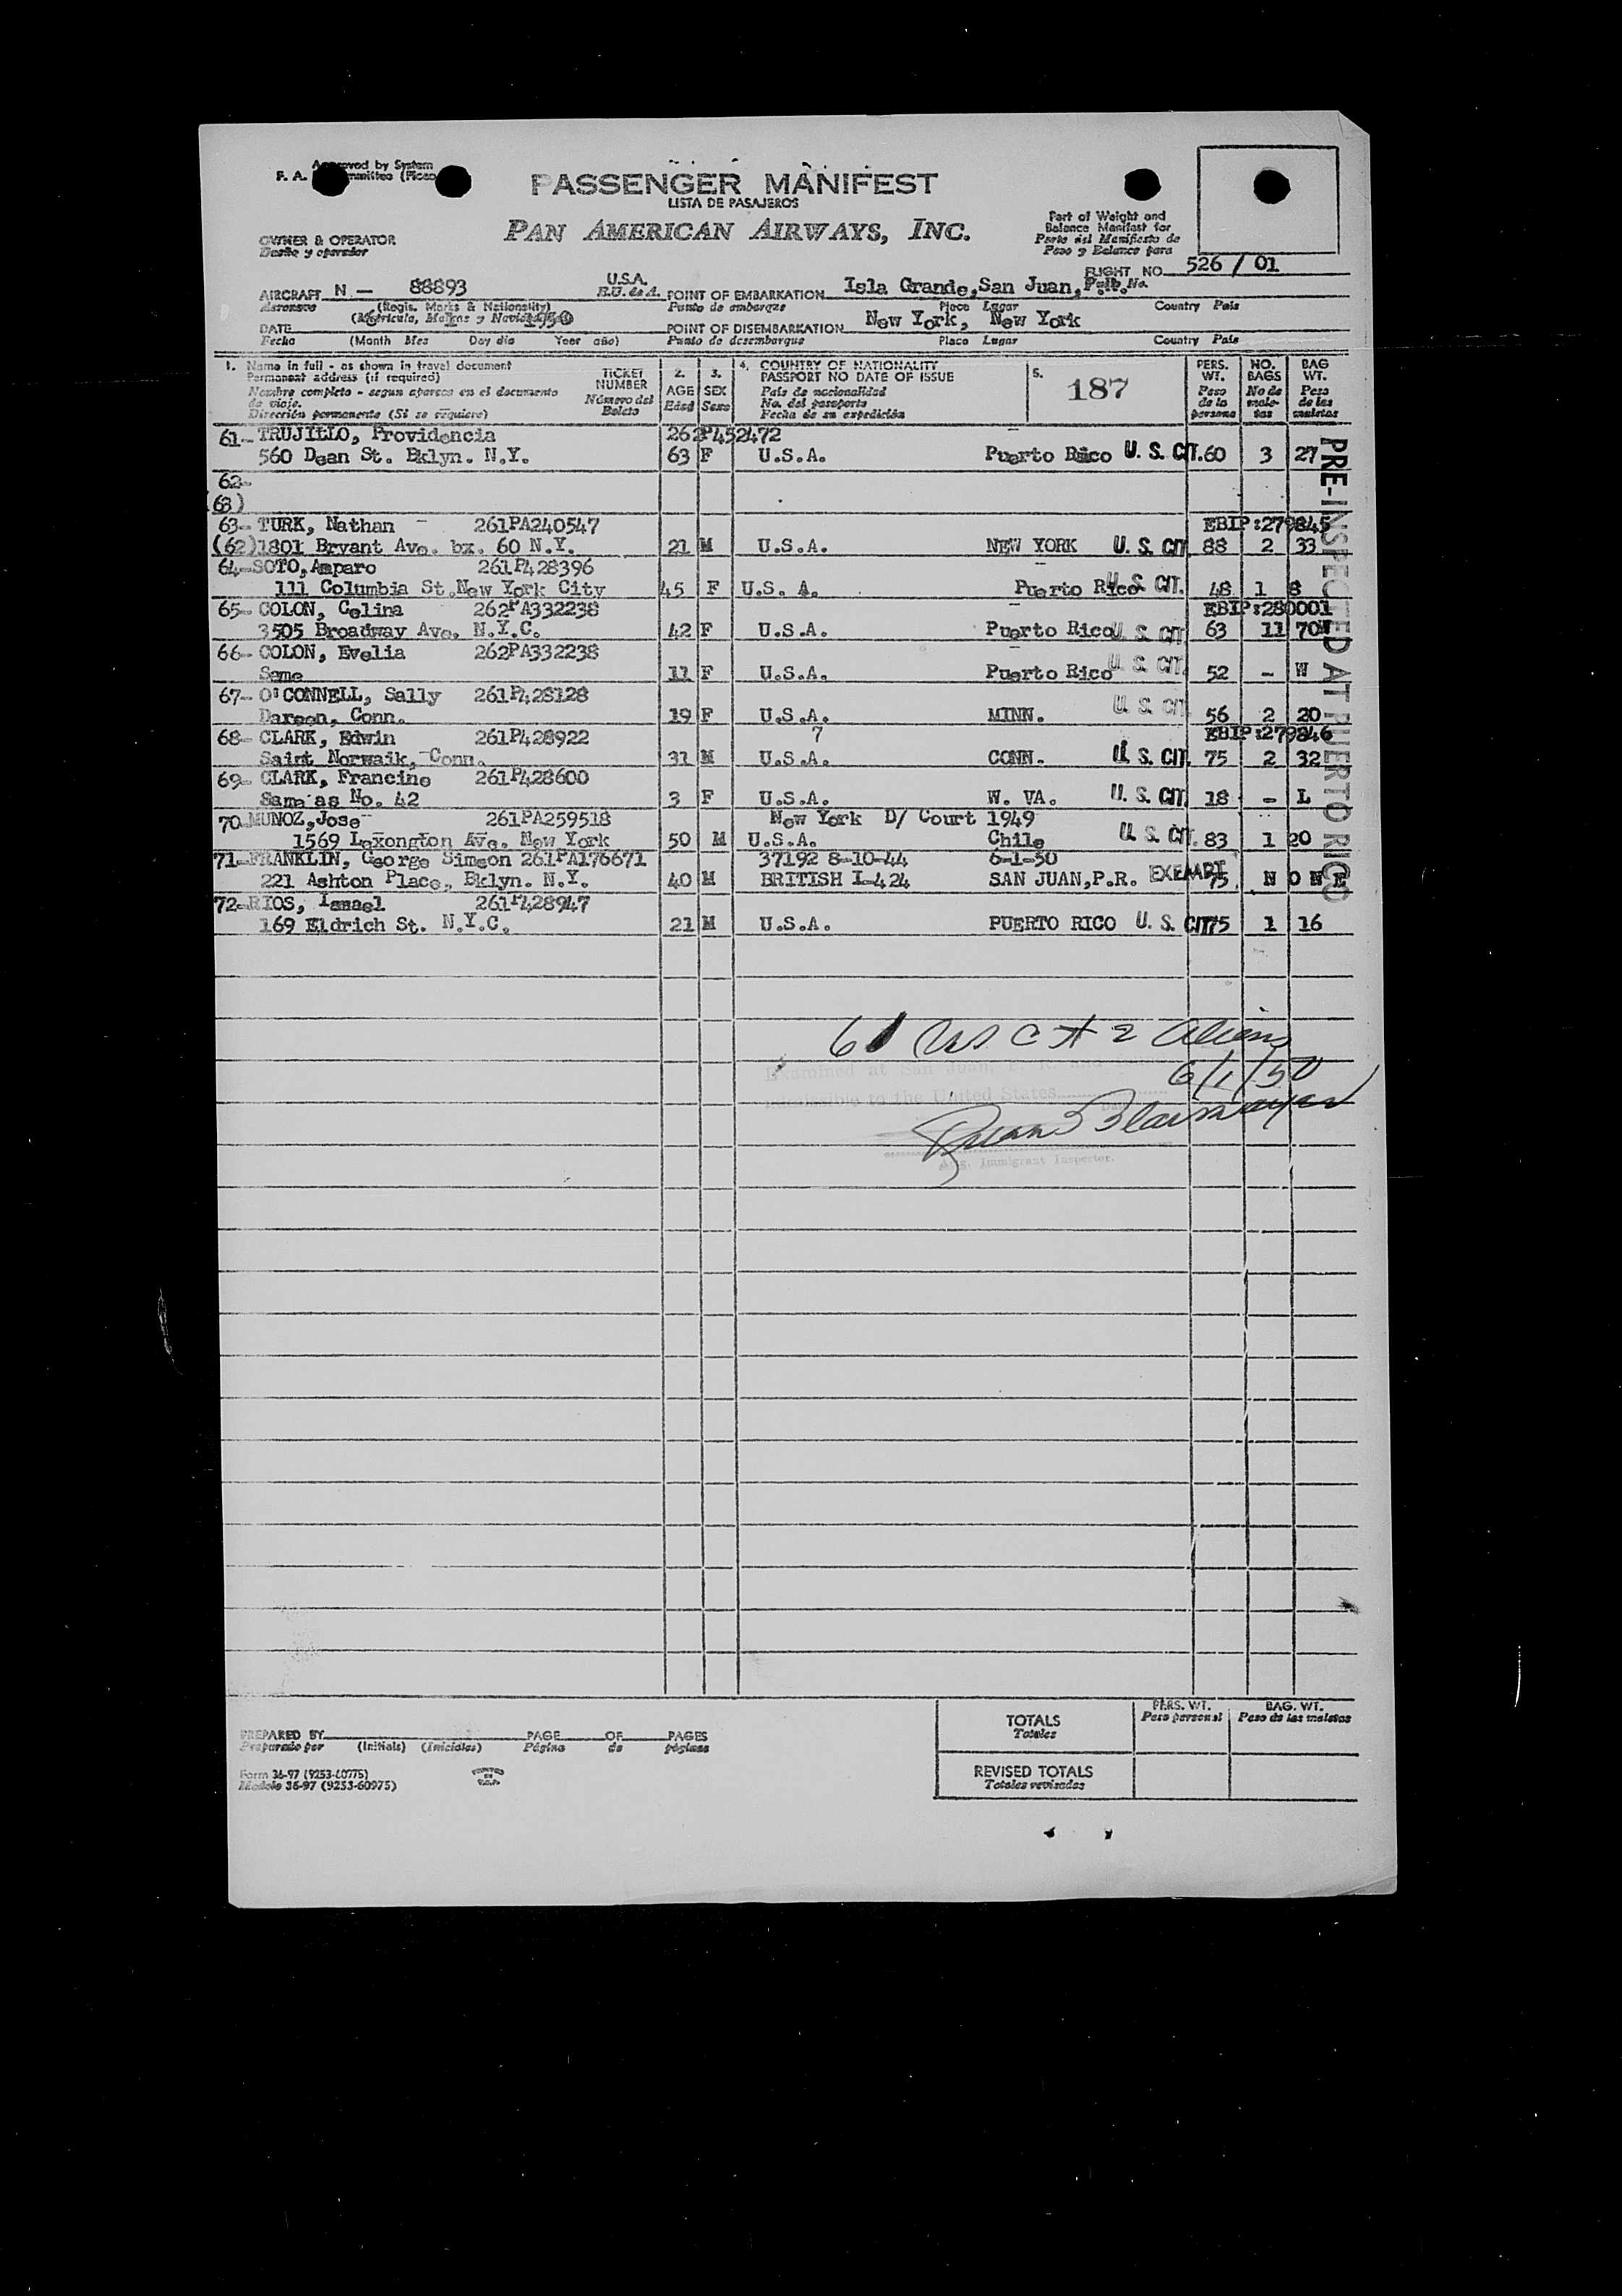 Approved by System
F. A.
PASSENGER MANIFEST
LISTA DE PASAJEROS
PAN AMERICAN AIRWAYS, INC.
Part of Weight and
Balance Manifest for
Parte del Manifiesto de
Peso y Balance para
OWNER & OPERATOR
Dueño y operador
FLIGHT NO. 526 / 01
AIRCRAFT N - 88893 U.S.A. POINT OF EMBARKATION Isla Grande,San Juan, P.R.
Aeronave (Regis. Marks & Nationality) E.U. de A. Punto de embarque Place Lugar Country País
(Matricula, Marcas y Nacionalidad)
DATE 6 1 1950 POINT OF DISEMBARKATION New York, New York
Fecha (Month Mes Day dia Year año) Punto de desembarque Place Lugar Country País
1. Name in full - as shown in travel document
Permanent address (if required)
Nombre completo - segun aparece en el documento
de viaje.
Dirección permanente (Si se requiere)
TICKET
NUMBER
Número del
Boleto
2.
AGE
Edad
3.
SEX
Sexo
4. COUNTRY OF NATIONALITY
PASSPORT NO DATE OF ISSUE
País de nacionalidad
No. del pasaporte
Fecha de su expedición
5.
187
PERS.
WT.
Peso
de la
persona
NO.
BAGS
No de
male-
tas
BAG
WT.
Peso
de las
maletas
61- TRUJILLO, Providencia 262P452472
560 Dean St. Bklyn. N.Y. 63 F U.S.A. Puerto Rico U. S. CIT. 60 3 27
62-
(63)
63- TURK, Nathan 261PA240547 EBIP:279845
(62) 1801 Bryant Ave. bx. 60 N.Y. 21 M U.S.A. NEW YORK U. S. CIT. 88 2 33
64-SOTO,Amparo 261P428396
111 Columbia St.New York City 45 F U.S. A. Puerto Rico U. S. CIT. 48 1 8
65- COLON, Celina 262PA332238 EBIP:280001
3505 Broadway Ave. N.Y.C. 42 F U.S.A. Puerto Rico U. S. CIT 63 11 70W
66- COLON, Evelia 262PA332238
Same 11 F U.S.A. Puerto Rico U. S. CIT. 52 - W
67- O'CONNELL, Sally 261P428128
Dareen, Conn. 19 F U.S.A. MINN. U. S. CIT 56 2 20
68- CLARK, Edwin 261P428922 7 EBIP:279846
Saint Norwaik, Conn. 31 M U.S.A. CONN. U. S. CIT. 75 2 32
69- CLARK, Francine 261P428600
Same as No. 42 3 F U.S.A. W. VA. U. S. CIT 18 - L
70 MUNOZ,Jose 261PA259518 New York D/ Court 1949
1569 Lexongton Ave. New York 50 M U.S.A. Chile U. S. CIT. 83 1 20
71-FRANKLIN, George Simeon 261PA176671 37192 8-10-44 6-1-50
221 Ashton Place, Bklyn. N.Y. 40 M BRITISH I-424 SAN JUAN,P.R. EXEMPT 75 N O N E
72-RIOS, Ismael 261P428947
169 Eldrich St. N.Y.C. 21 M U.S.A. PUERTO RICO U. S. CIT 75 1 16
PRE-INSPECTED AT PUERTO RICO
61 US C + 2 Aliens
Examined at San Juan, P. R. and
admissible to the United States
6/1/50
Immigrant Inspector.
PREPARED BY PAGE OF PAGES
Preparado por (Initials) (Iniciales) Página de páginas
Form 36-97 (9253-60975)
Modelo 36-97 (9253-60975)
PRINTED
IN
U.S.A.
PERS. WT.
Peso personal
BAG. WT.
Peso de las maletas
TOTALS
Totales
REVISED TOTALS
Totales revisados